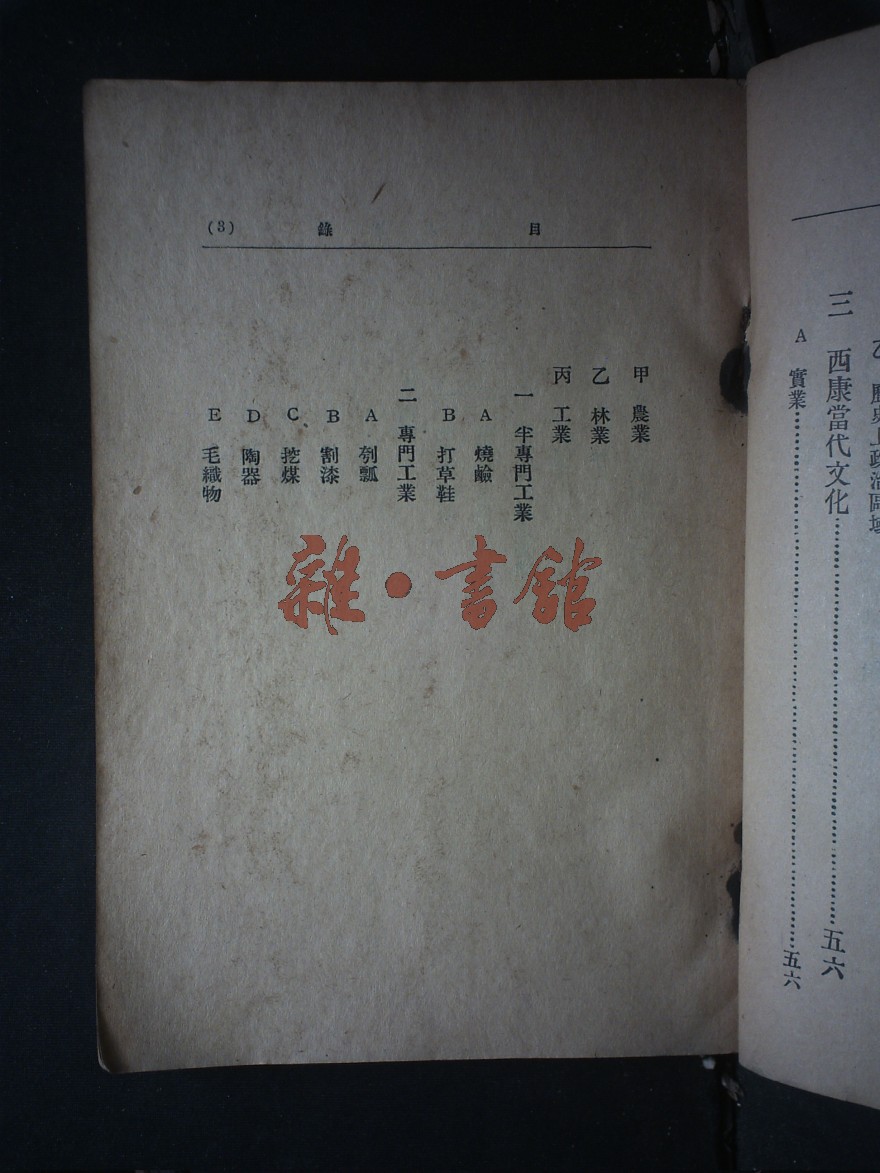 乙 歷史上政治區域
三 西康當代文化……五六
A 實業……五六
目 錄 (3)
甲 農業
乙 林業
丙 工業
一 半專門工業
A 燒鹼
B 打草鞋
二 專門工業
A 刳瓢
B 割漆
C 挖煤
D 陶器
E 毛織物
雜·書館